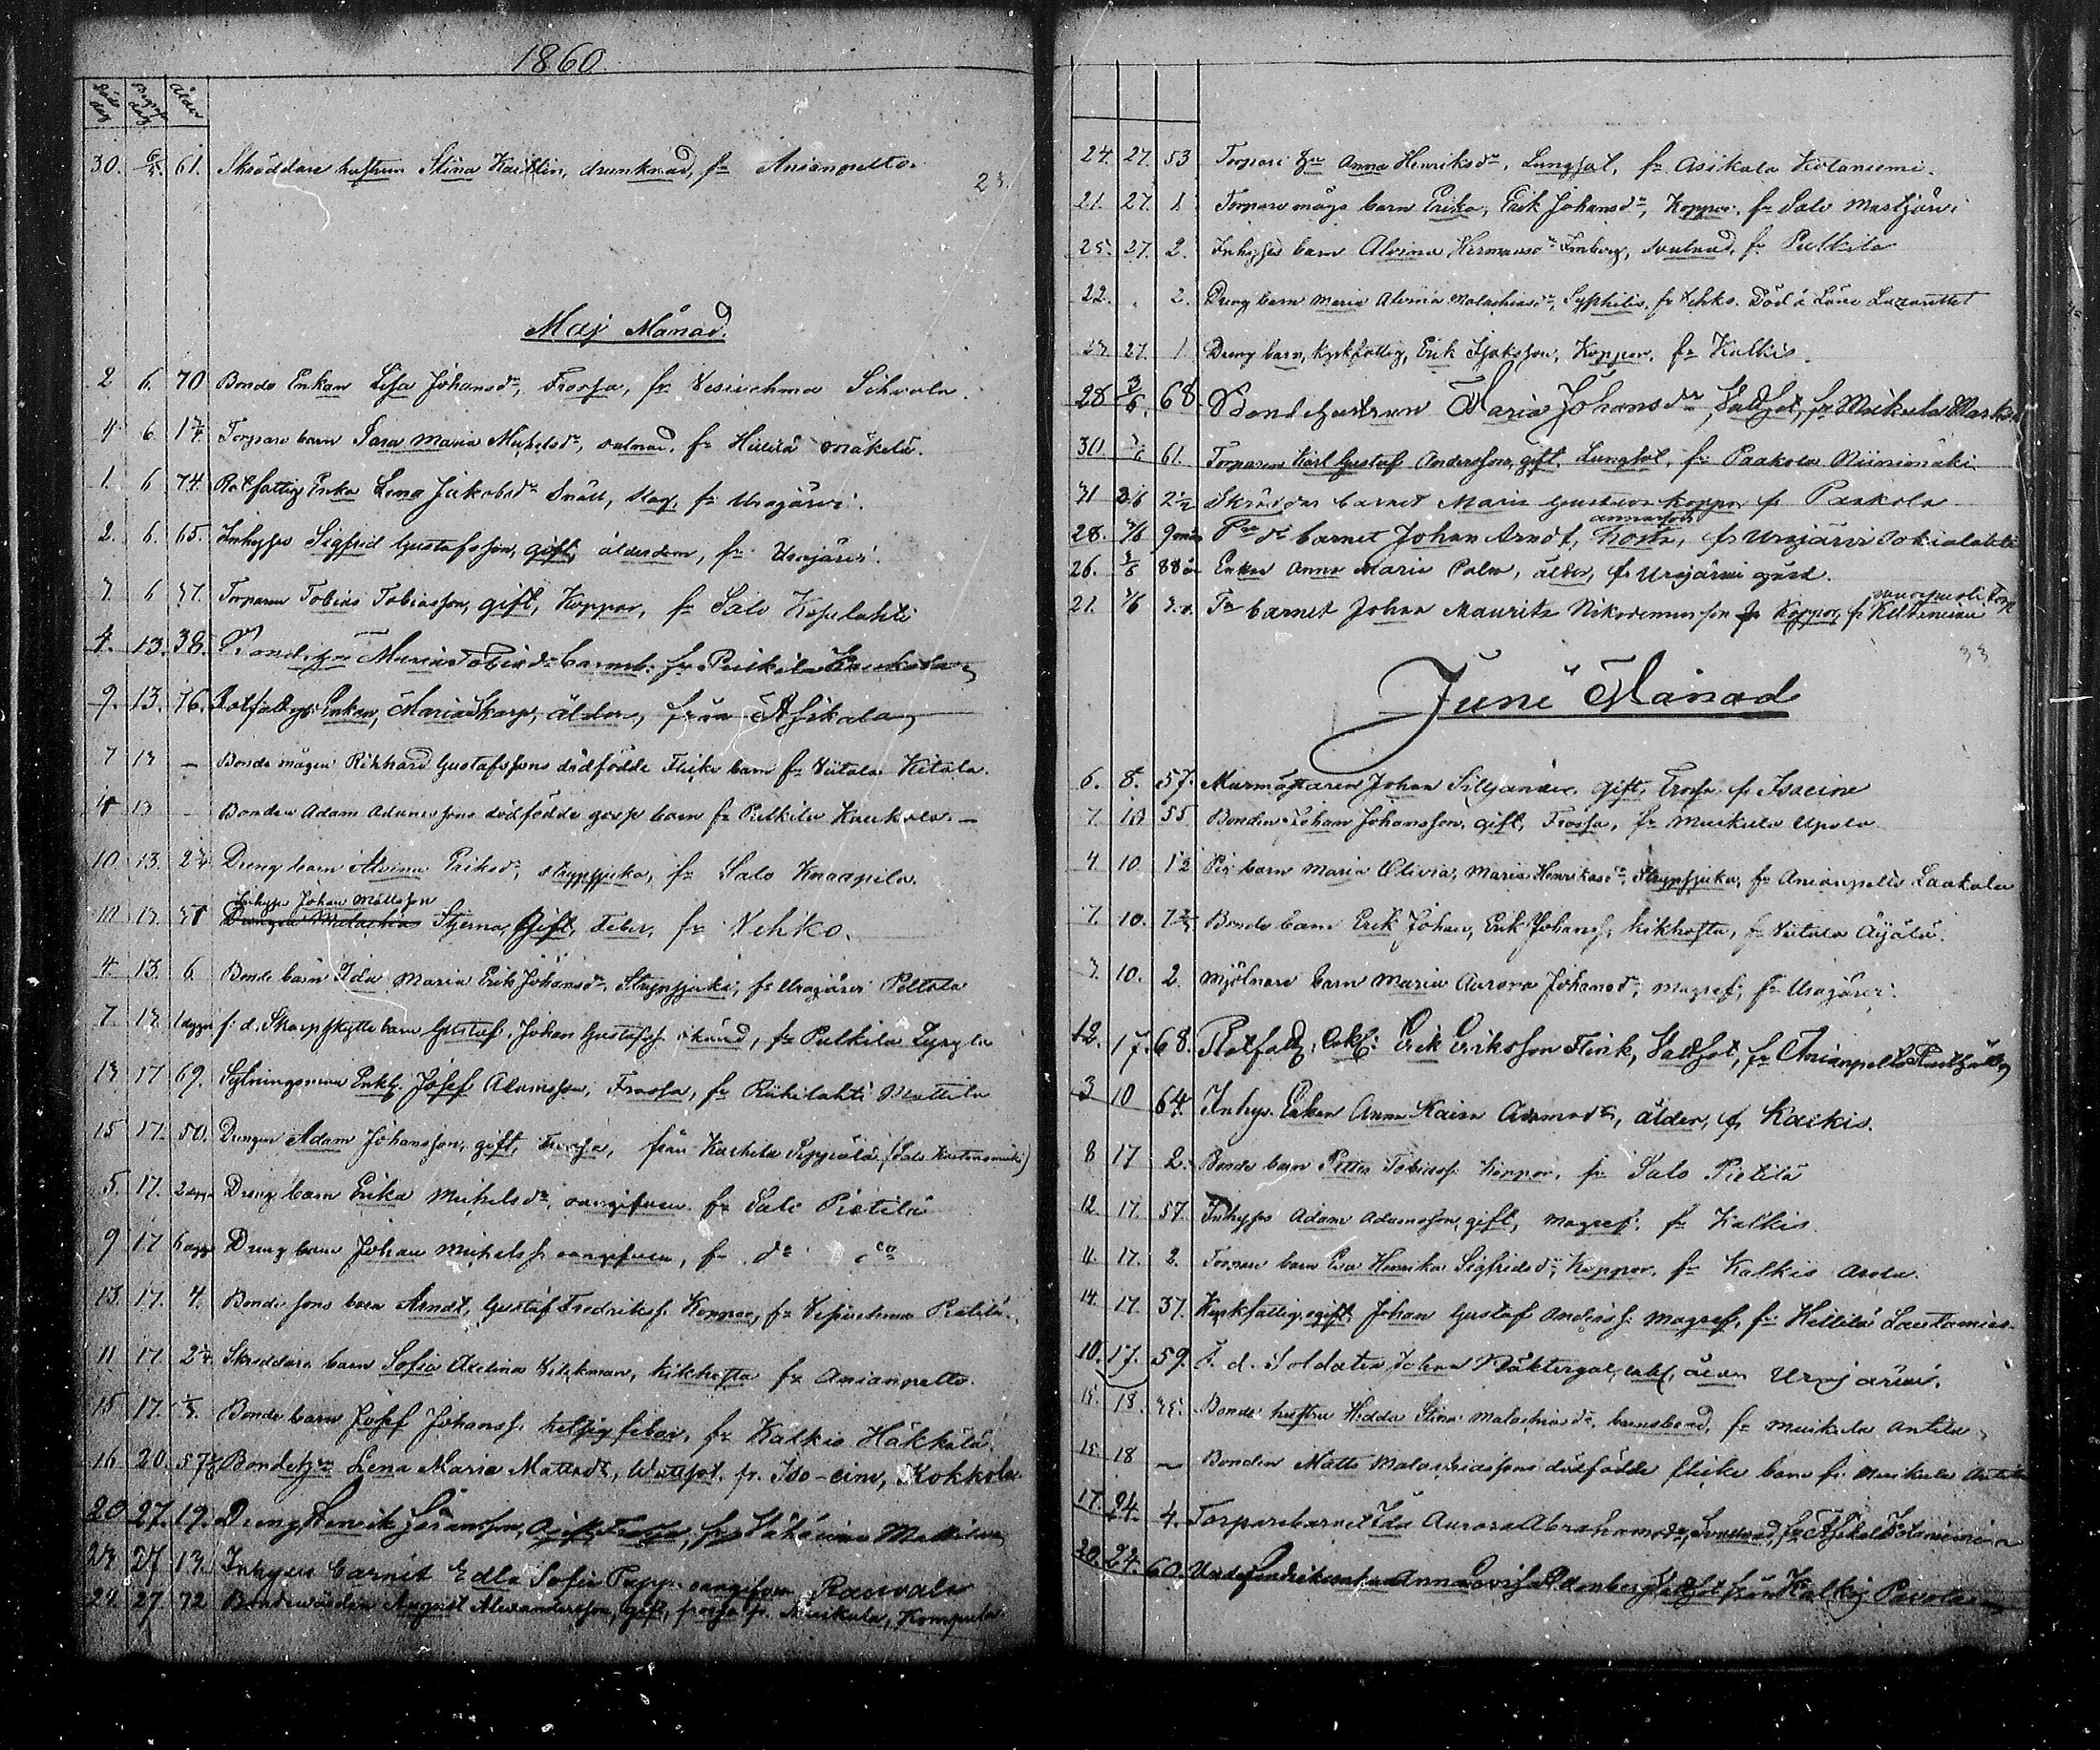 1860
Död dag Begraf dag Ålder
30. 6/5 61. Skräddare hustrun Stina Kaitlin, drunknad, fr Anianpelto
23.
Maj Månad.
2 6. 70 Bonde Enkan Lisa Johansdr, Frossa, fr Vesivehma Sihvola.
4 6 1 3/4 Torpare barn Sara Maria Michelsdr, fr Hillilä Mäkelä.
1. 6 74. Rotfattig Enka Lena Jakobsdr Snäll, slag, fr Urajärvi.
2. 6. 65. Inhyses Sigfrid Gustafsson, gift, ålderdom, fr Urajärvi.
6 37. Torparen Tobias Tobiasson, gift, Koppor, fr Salo
4. 13. 38. Bond. hru Maria Tobiadr barnsb. fr Pulkkila Kaukola
9. 13. 76. Rotfattigs Enkan, Maria Skarp, ålder, från Asikala
7 13 — Bonde mågen Rikhard Gustafssons dödfödde Flicke barn fr Viitala Kitala.
13 — Bonden Adam Adamssons dödfödde gosse barn fr Pulkila Kaukola —
10. 13. 2 3/4 Dreng barn Alvina Eriksdr, strypsjuka, fr Salo Knaapila.
Inhyses Johan Mattsson
13 Drengen Malachias Stjerna, Gift, Feber, fr Vehko.
4 13. 6 Bonde barn Ida Maria Erik Johansdr, Strypsjuka, fr Urajärvi Peltola
7 13. 1 dygn f. d. Skarpskytte barn Gustaf, Johan Gustafss. okänd, fr Pulkila Tyryla
13 17 69. Sytningsman Enkl. Josef Adamsson, Frossa, fr Riihilahti Mattila
15 17. 50. Drengen Adam Johansson, gift, Frossa, från Kurhila Seppälä (Salo
5. 17. 2 dygn Drengs barn Erika Michelsdr, oangifven fr Salo Pietilä
9 17 6 dygn Dreng barn Johan Michelss. oangifven, fr do do
13. 17. 4. Bonde sons barn Arndt, Gustaf Fredrikss. Koppor, fr Vesivehma Pietilä.
11 17. 2 3/4 Skreddare barn Sofia Adelina Vilckman, kikhosta fr Anianpelto.
15 17. Bonde barn Josef Johanss. hetsig feber, fr Kalkis Häkkälä.
16 20. 57 Bondehru Lena Maria Mattsdr, Wattsot. fr. Iso-eine, Kokkola
20 27. 19. Dreng Henrik Johansson, Ogift, Frossa, fr Vähäeine Mattila
27 13. Inhyses barnet Edla Sofia Papp. oangifven Rasvala
27. 72 Bondevärden August Alexandersson, gift, frossa fr. Muikula, Kompula
24. 27. 53 Torpari hru Anna Henriksdr, Lungsot, fr Asikala Kotaniemi.
21. 27. 1 Torpare mågs barn Erika, Erik Johansdr, Koppor, fr Salo Mastjärvi
25. 27. 2. Inhyses barn Alvina Hermansdr Limberg, svulnad, fr Pulkila
22. . 2. Dreng barn Maria Alvina Malachiasdr, Syphilis, fr Vehko. Död å Läne Lazarettet
27. 1. Dreng barn, kyrkfattig, Erik Isaksson, Koppor, fr Kalkis.
28 3/6. 68. Bondehustrun Maria Johansdr, Vattsot, fr Muikula
30 61. Torparen Karl Gustaf Andersson, gift, Lungsot, fr Paakola Niinimäki
31 3/6 2 1/2 Skräddar barnet Maria Gustava Koppor fr Paakola
28. 3/6 9 mån Pr dr barnet Johan Arndt, Hosta, fr Urajärvi
26. 3/6 88 år Enkan Anna Maria Palm, ålder, fr Urajärvi gård.
21. 3/6 Tr barnet Johan Maurits Nikodemusson Koppor, fr Kelkeniemi
33
Juni Månad
6. 8. 57. Murmästaren Johan Siljander, gift, Frossa, fr Isoeine
7. 10 55 Bonden Johan Johansson, gift, Frossa, fr Muikula Upola
4. 10. 1 1/2 Pig barn Maria Olivia, Maria Henriksdr, Strypsjuka, fr Anianpelto Laakola
7. 10. Bonde barn Erik Johan, Erik Johanss, kikhosta, fr Viitala Äijälä.
10. 2. Mjölnare barn Maria Aurora Johansdr, magref, fr Urajärvi.
12. 17. 68. Rotfattig, Enkl: Erik Eriksson Flink, Vattsot, fr Anianpelto
3 10 64. Inhys. Enkan Anna Kaisa Adamsdr, ålder, fr Kalkis.
8 17 2. Bonde barn Petter Tobiass. Koppor. fr Salo Pietilä
12. 17. 57. Inhyses Adam Adamsson, gift, magref, fr Kalkis.
11. 17. 2. Torpare barn Eva Henrika Sigfridsdr, Koppor, fr Kalkis Arola.
14. 17. 37. Kyrkfattig, ogift, Johan Gustaf Anderss. magref, fr Hillilä
10. 17. 59. F. d. Soldaten Johan Näktergal, enkl. ålder Urajärvi.
15. 18. 35. Bonde hustru Hedda Stina Malachiasdr, barnsbörd, fr Muikula Antila
15 18 — Bonden Matts Malachiassons dödfödde flicke barn fr Muikula Antila
17. 24. 4. Torparebarnet Ida Aurora Abrahamsdr, Svulnad, fr Asikala Kotaniemi
20. 24. 60 Underfendriksenkan Anna Lovisa Vattsot från Kalkis Pavola